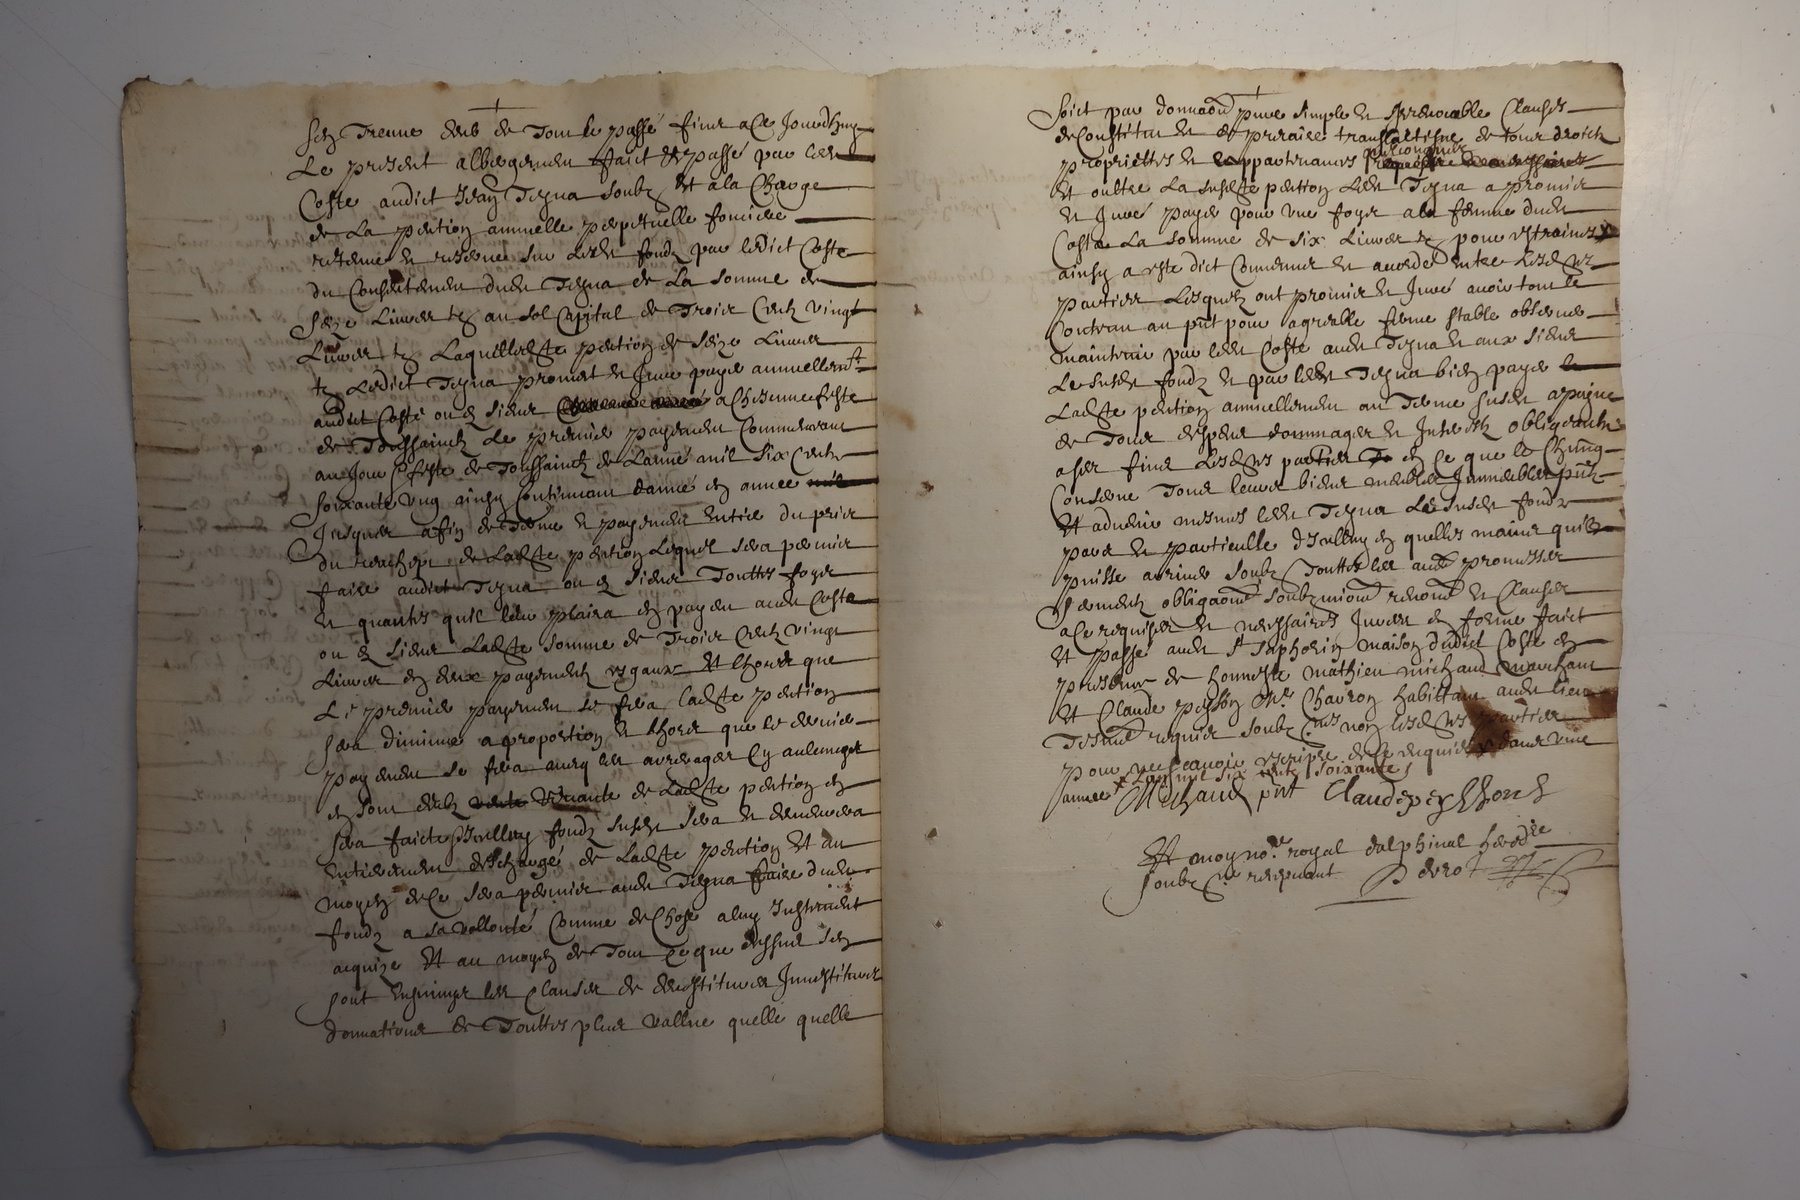 sez Trenne deub de Tout le passé fine a Ce Jourdhuy
Le present albergemen faict & passé par led
Coste audict Jean Teyna soubz Et a la Charge
de La pention annuelle perpetuelle fonciere
retenue et reservee sur led fondz par ledict Coste
du Consentemen dud Teyna de La somme de
Seze Livres tz au sol Capital de Trois Centz vingt
Livres tz Laquelle ditte pention de seize Livres
tz Ledict Teyna promet et Jure payer annuellemt
audict Coste ou es siens a Chescune feste
de Toussainctz Le premier payemen Commencant
au Jour & feste de Toussainctz de Lanné mil six Centz
soixante ung ainsy Continuant danné en année
Jusques a fin de Terme et payement entier du prix
du reachept de Ladte pention Lequel sera permis
faire audict Teyna ou es siens Touttes foys
et quantes quil leur plaira en payen aud Coste
ou es siens Ladte somme de Trois Centz vingt
Livres en deux payementz esgaux Et lhors que
Le premier payemen se fera ladte pention
sera diminue a proportion et lhors que le dernier
payemen se fera avecq les arreages sy aulcunges
en sont deubz de Ladte pention en
sera faicte Icelluy fondz susdt sera et demeurera
entierement descharge de Ladte pention Et au
moyen de Ce sera permis aud Teyna faire dud
fondz a sa vollonté Comme de Chose a luy Justement
acquize Et au moyen de Tout Ce que dessus sen
sont ensuivye les Clauses de devestitures Jnvestitures
donnations de Touttes plus vallue quelle quelle
soict par donnaon pure simple et Irrevocable Clauses
de Constitut et de preraire translattisve de tous droictz
propriettes et appartenances
Et oultre La susdte pention Led Teyna a promis
et Juré payer pour une foys a la femme dud
Coste La somme de six Livres tz pour estraines
ainsy a este dict Convenu et acorde entre Lesdtes
parties Lesquels ont promis et Juré avoir tout le
Contenu au pnt pour agreable ferme stable observer
maintenir par led Coste aud Teyna et aux siens
Le susdt fondz et par led Teyna bien payer
Ladte pention annuellemen au Terme susdt a payne
de Tous despens dommages et Jnterestz obligeantz
a Ces fins Lesdtes parties en Ce que le Chung
Conserne Tous leurs biens meubles Jmmeubles pntz
Et advenir mesmes led Teyna Le susdt fondz
pars et particulle dIcelluy en quelles mains quilz
puisse arriver soubz Touttes les aud promesses
sermentz obligaons soubzmions renons et Clauses
a Ce requises et necessaires Jurees en forme faict
Et passé aud St Saphorin maison dudict Coste en
presence de honneste Mathieu Michaud marchant
Et Claude Me Charron habittans aud lieu
Tesmoins requis soubznes non lesdtes parties
pour ne scavoir escripre de Ce requises dans une
annee Lan mil six centz soixante
Michaud pnt Claude
Et moy nore royal dalphinal heredre
soubzne recepvant Derrot